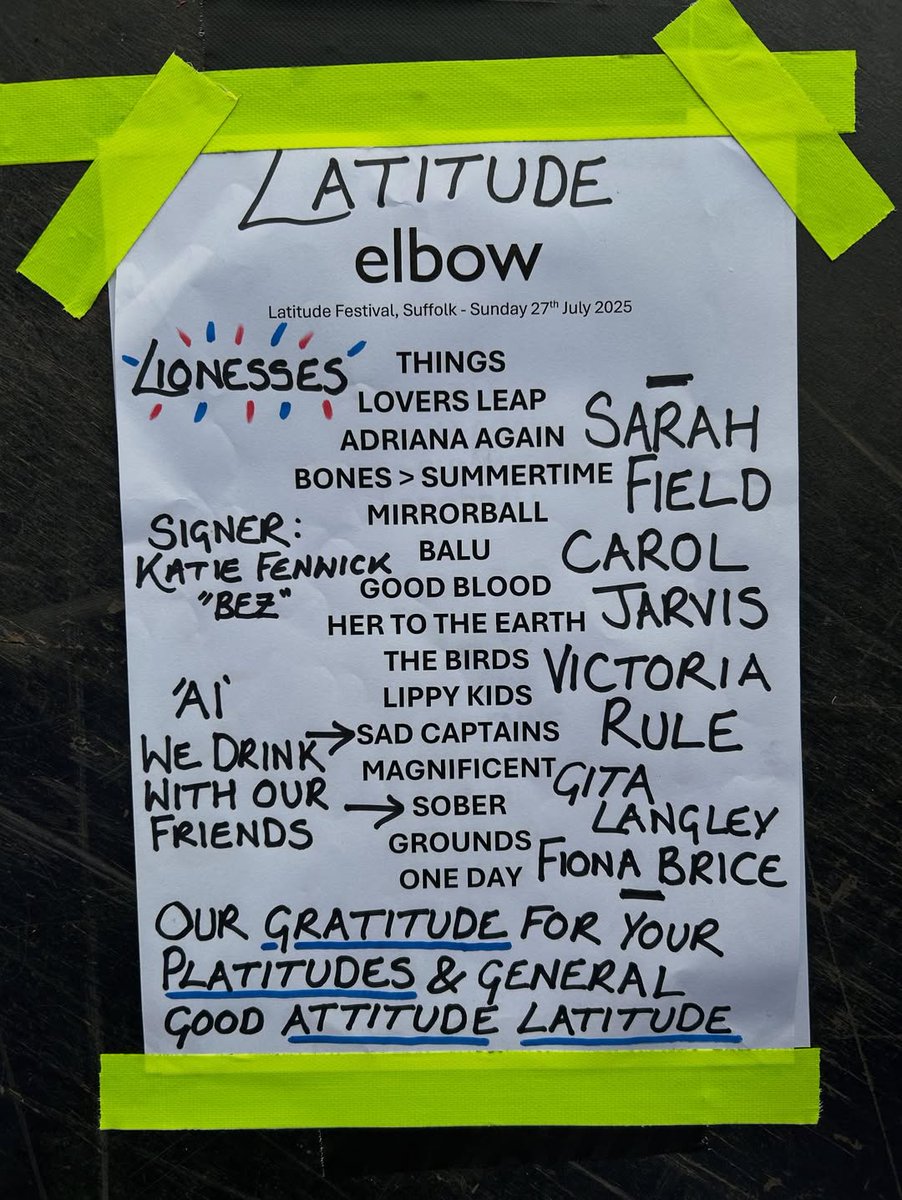 LATITUDE
elbow
Latitude Festival, Suffolk - Sunday 27th July 2025
LIONESSES
THINGS
LOVERS LEAP
ADRIANA AGAIN
BONES > SUMMERTIME
MIRRORBALL
BALU
GOOD BLOOD
HER TO THE EARTH
THE BIRDS
LIPPY KIDS
SAD CAPTAINS
MAGNIFICENT
SOBER
GROUNDS
ONE DAY
SIGNER:
KATIE FENNICK
"BEZ"
'AI'
WE DRINK
WITH OUR
FRIENDS
SARAH
FIELD
CAROL
JARVIS
VICTORIA
RULE
GITA
LANGLEY
FIONA BRICE
OUR GRATITUDE FOR YOUR
PLATITUDES & GENERAL
GOOD ATTITUDE LATITUDE